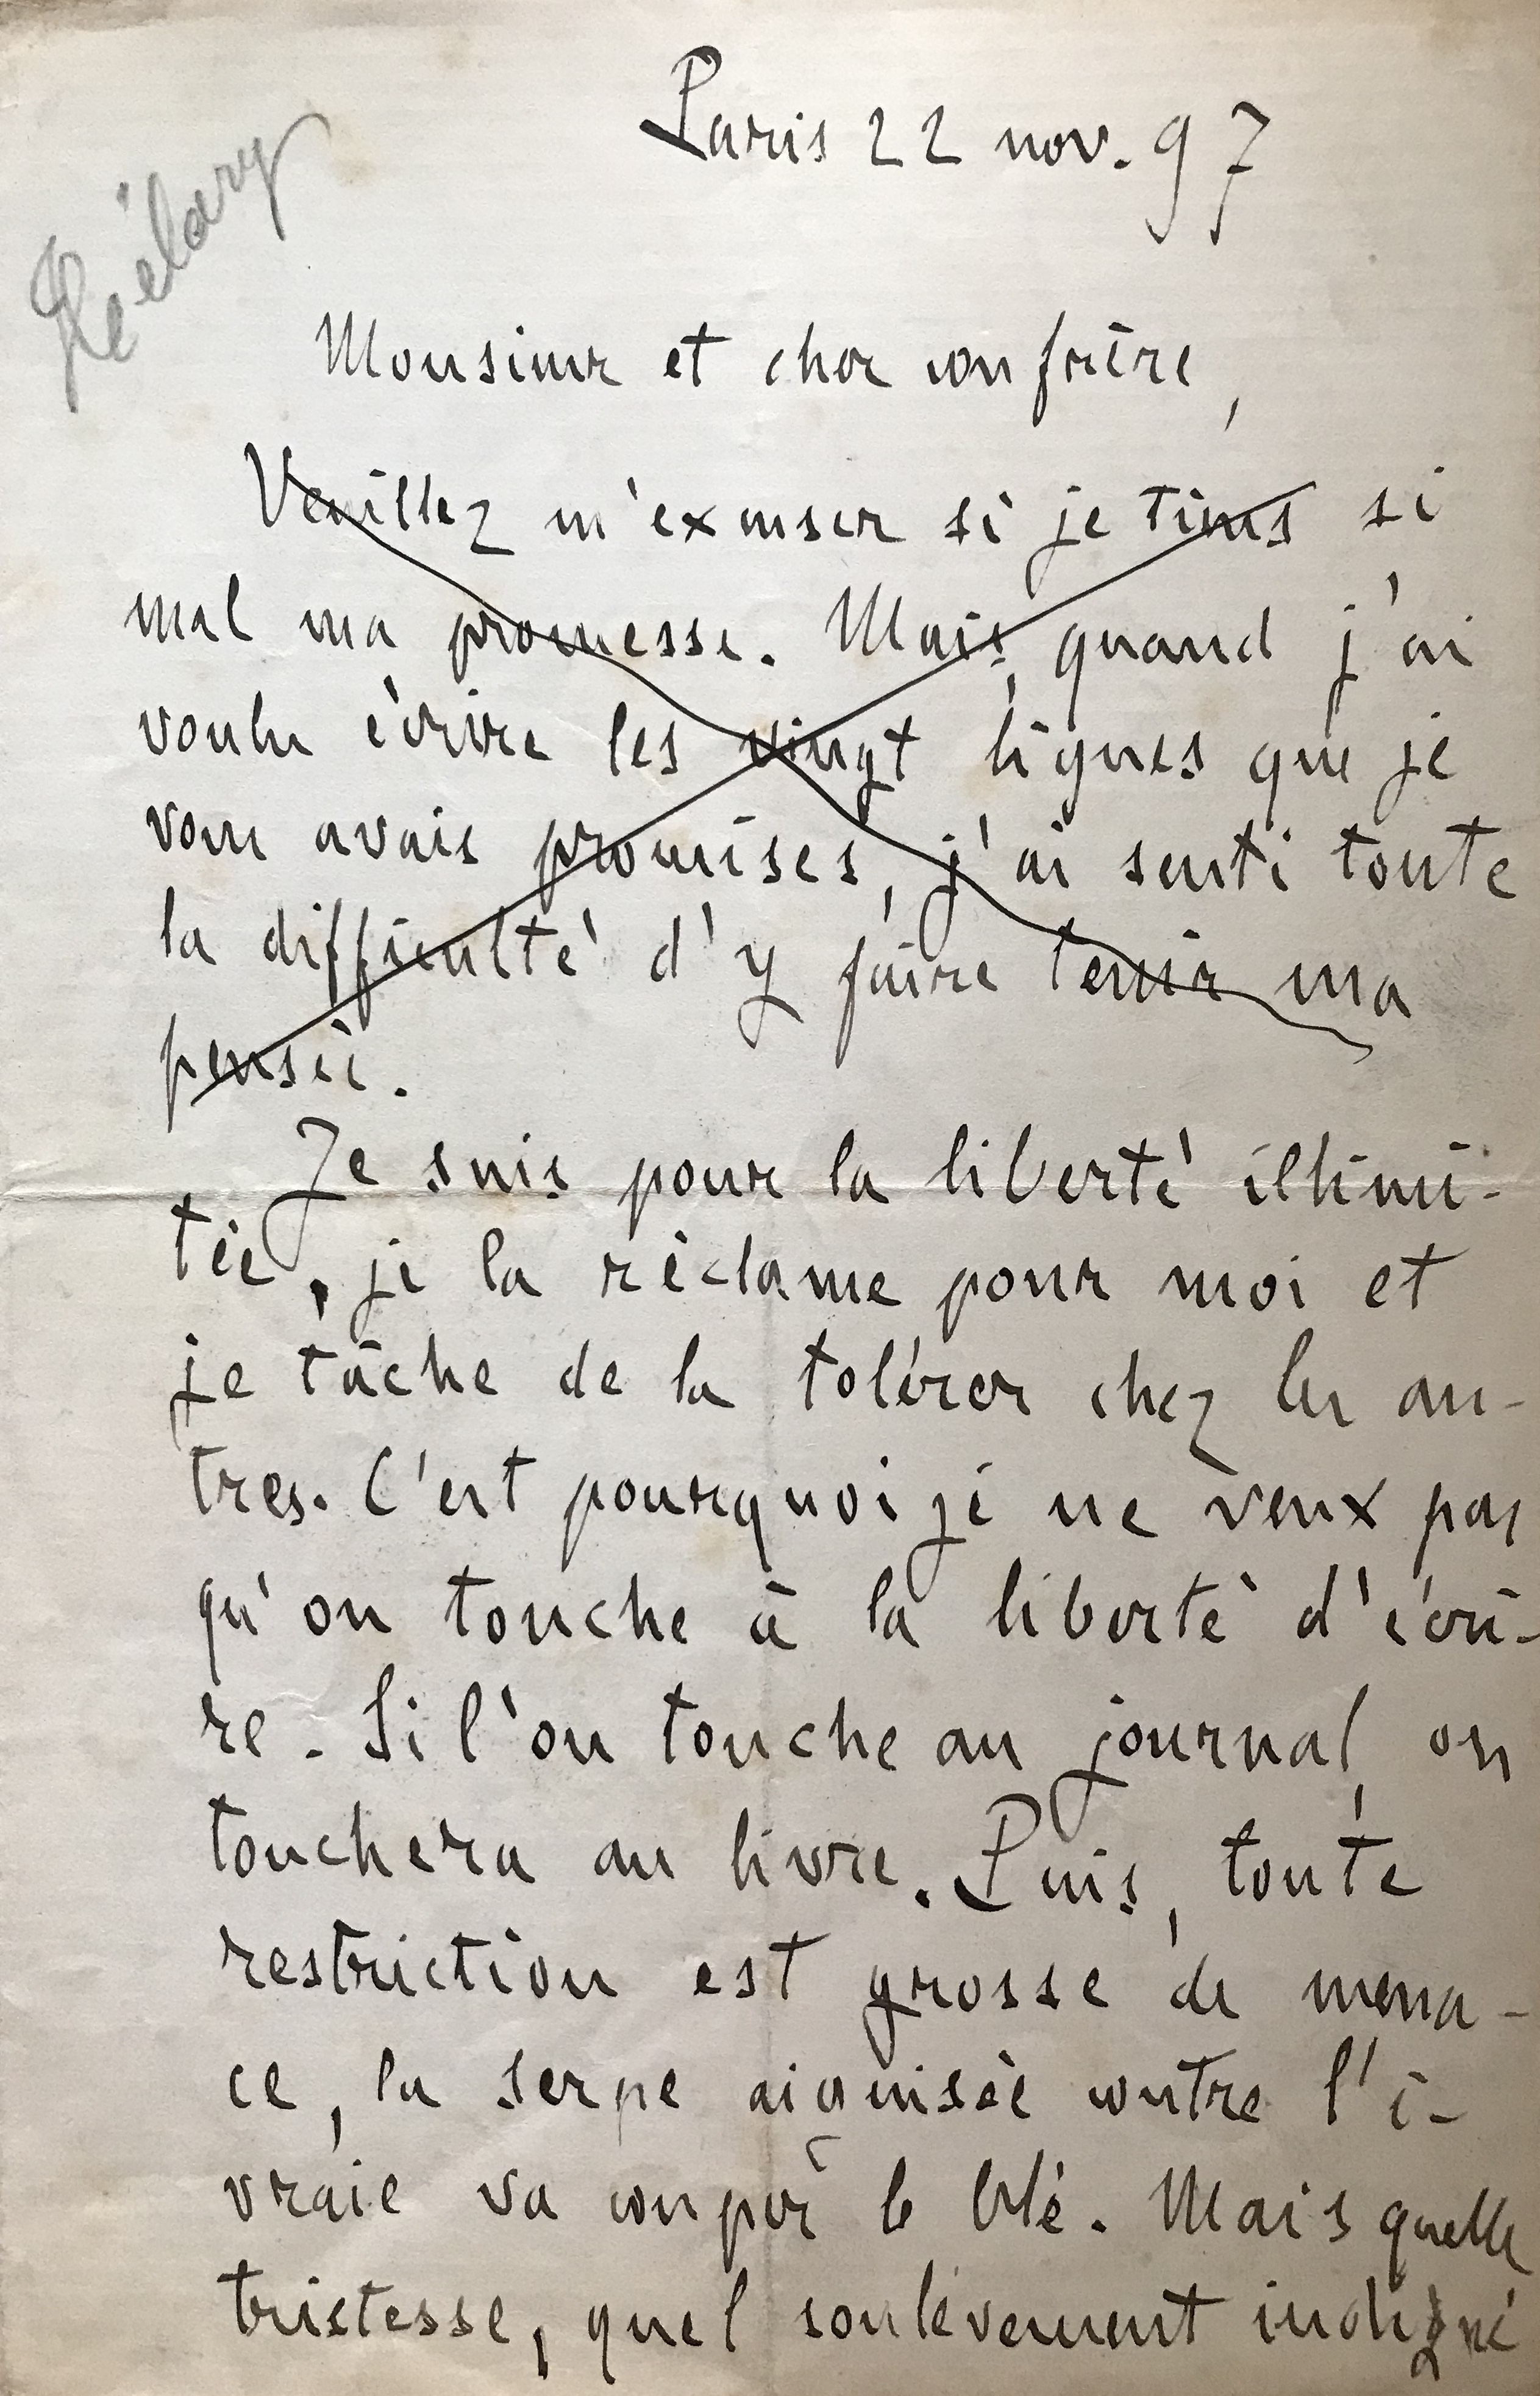 Paris 22 nov. 97
Monsieur et cher confrère,
Veuillez m'excuser si je tiens si
mal ma promesse. Mais, quand j'ai
voulu écrire les vingt lignes que je
vous avais promises, j'ai senti toute
la difficulté d'y faire tenir ma
pensée.
Je suis pour la liberté illimi-
tée, je la réclame pour moi et
je tâche de la tolérer chez les au-
tres. C'est pourquoi je ne veux pas
qu'on touche à la liberté d'écri-
re. Si l'on touche au journal, on
touchera au livre. Puis, toute
restriction est grosse de mena-
ce, la serpe aiguisée contre l'i-
vraie va couper le blé. Mais quelle
tristesse, quel soulèvement indigné